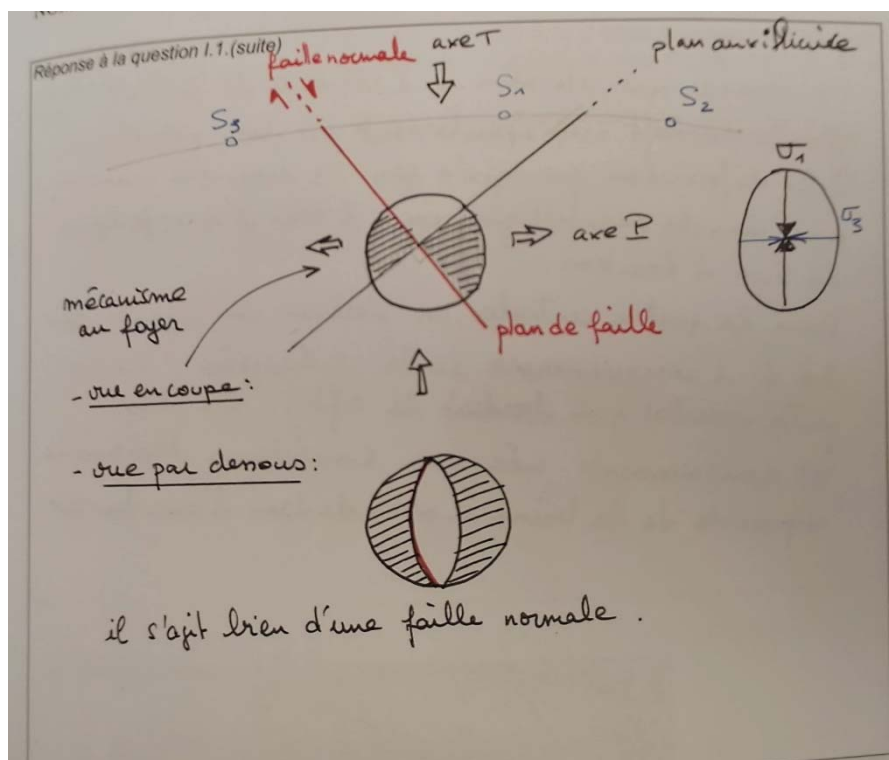 Réponse à la question I.1.(suite)
faille normale
axe T
plan auxiliaire
S3
S1
S2
σ1
σ3
axe P
mécanisme
au foyer
plan de faille
- vue en coupe :
- vue par dessous :
il s'agit bien d'une faille normale .